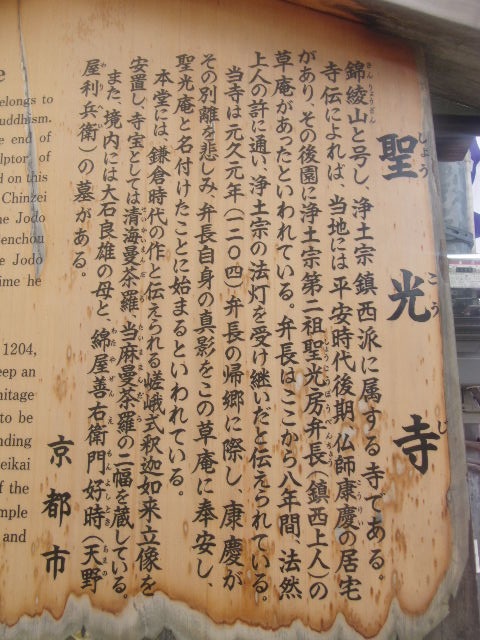 聖光寺
錦綾山と号し、浄土宗鎮西派に属する寺である。
寺伝によれば、当地には平安時代後期、仏師康慶の居宅
があり、その後園に浄土宗第二祖聖光房弁長（鎮西上人）の
草庵があったといわれている。弁長はここから八年間、法然
上人の許に通い、浄土宗の法灯を受け継いだと伝えられている。
当寺は元久元年（一二〇四）弁長の帰郷に際し、康慶が
その別離を悲しみ、弁長自身の真影をこの草庵に奉安し、
聖光庵と名付けたことに始まるといわれている。
本堂には、鎌倉時代の作と伝えられる嵯峨式釈迦如来立像を
安置し、寺宝としては清海曼荼羅、当麻曼荼羅の二幅を蔵している。
また、境内には大石良雄の母と、綿屋善右衛門好時（天野
屋利兵衛）の墓がある。
京都市
e
elongs to
uddhism.
e end of
ulptor of
d on this
Chinzei
he Jodo
Benchou
e Jodo
ime he
1204,
eep an
mitage
to be
nding
eikai
f the
mple
and